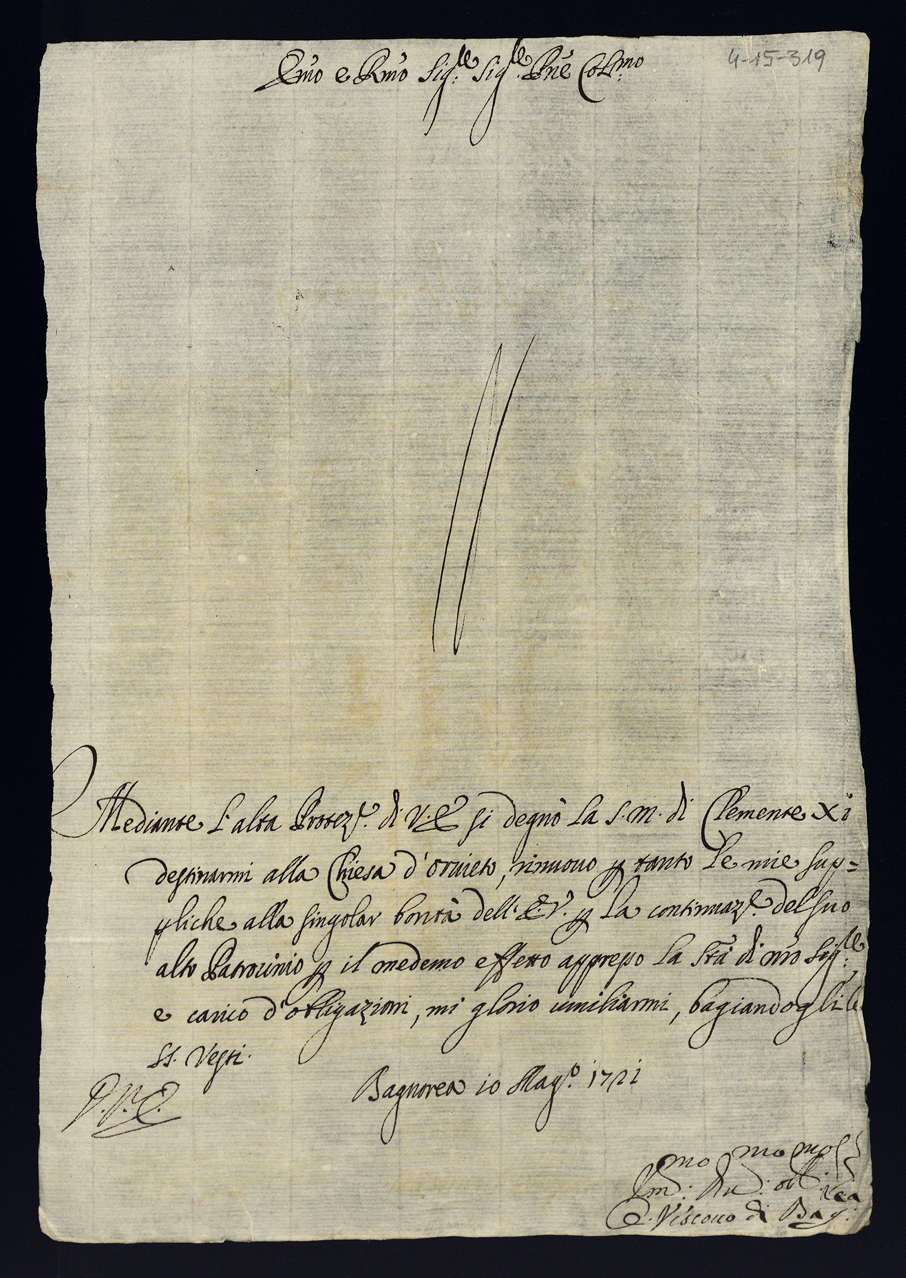 Emo e Rmo Sig.re Sig.re Pne Col.mo
4-15-319
Mediante l'alta Protez.e di V. E. si degnò la S. M. di Clemente XI
destinarmi alla Chiesa d'Orvieto, rinuovo p tanto le mie sup=
pliche alla singolar bontà dell' E. V. p la continuaz.e del suo
alto Patrocinio p il medemo effetto appresso la Stà di nro Sig.re
e carico d'obligazioni, mi glorio umiliarmi, bagiandogli le
SS. Vesti.
Bagnorea 10 Mag.o 1721
D. V. E.
Vescovo di Bag.rea